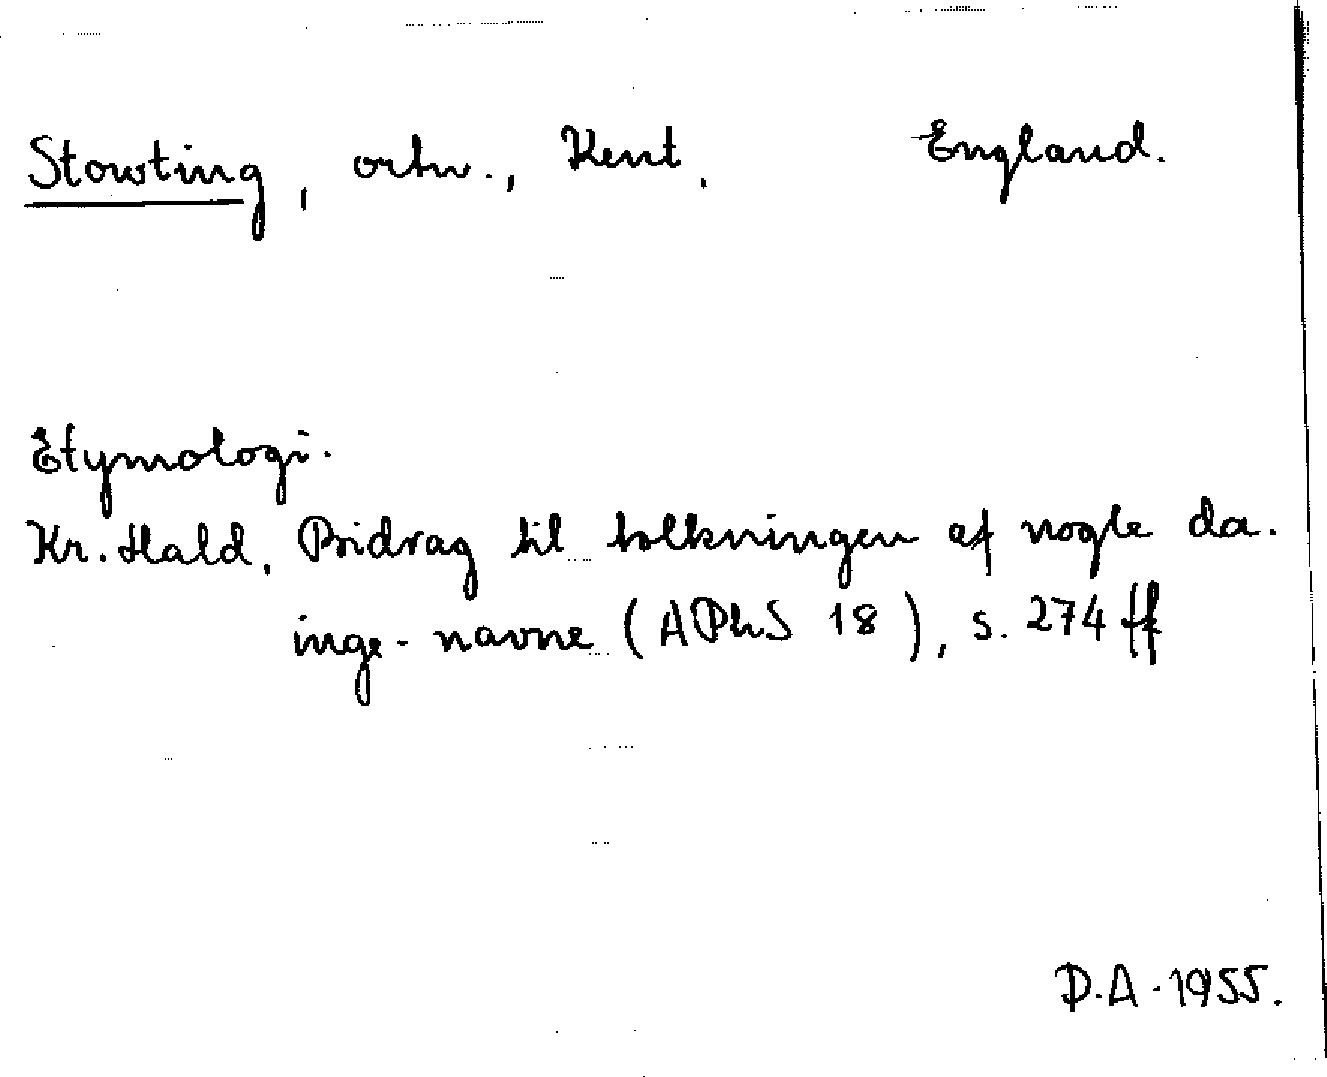 Stowting, ortn., Kent. England.
Etymologi.
Kr. Hald, Bidrag til tolkningen af nogle da.
inge-navne (APhS 18), s. 274 ff
D.A. 1955.